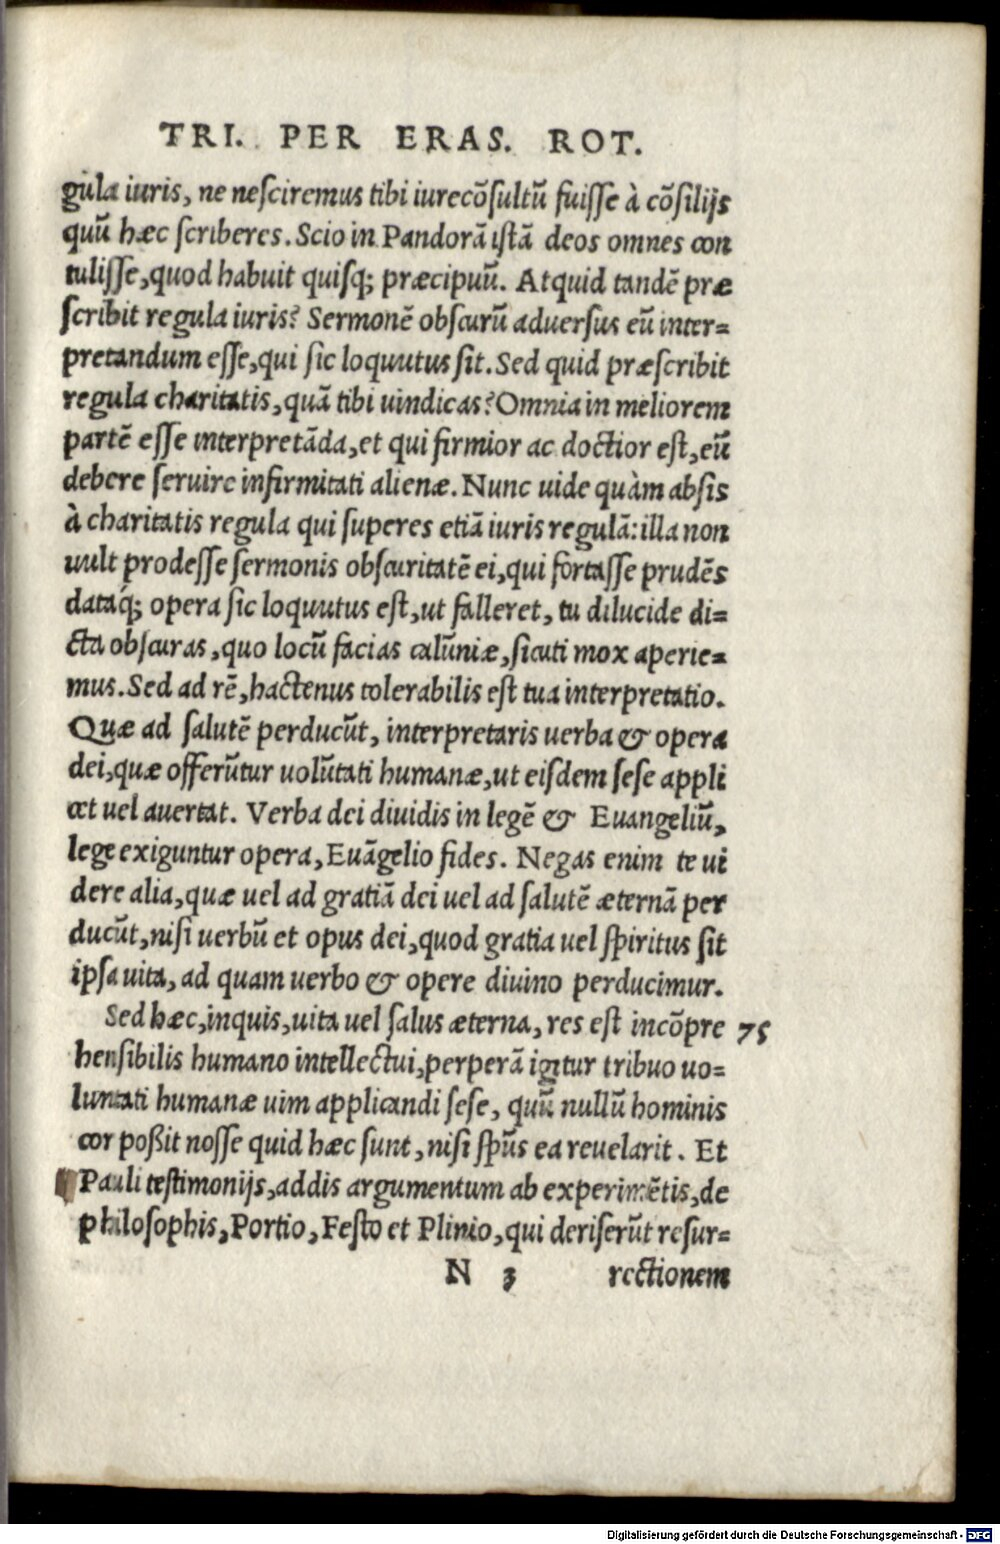 TRI. PER ERAS. ROT.
gula iuris, ne nesciremus tibi iurecõsultũ fuisse à cõsilijs
quũ hæc scriberes. Scio in Pandorã istã deos omnes con
tulisse, quod habuit quisq; præcipuũ. At quid tandẽ præ
scribit regula iuris? Sermonẽ obscurũ aduersus eũ inter=
pretandum esse, qui sic loquutus sit. Sed quid præscribit
regula charitatis, quã tibi uindicas? Omnia in meliorem
partẽ esse interpretãda, et qui firmior ac doctior est, eũ
debere seruire infirmitati alienæ. Nunc uide quàm absis
à charitatis regula qui superes etiã iuris regulã: illa non
uult prodesse sermonis obscuritatẽ ei, qui fortasse prudẽs
dataq́; opera sic loquutus est, ut falleret, tu dilucide di=
cta obscuras, quo locũ facias calũniæ, sicuti mox aperie=
mus. Sed ad rẽ, hactenus tolerabilis est tua interpretatio.
Quæ ad salutẽ perducũt, interpretaris uerba & opera
dei, quæ offerũtur uolũtati humanæ, ut eisdem sese appli
cet uel auertat. Verba dei diuidis in legẽ & Euangeliũ,
lege exiguntur opera, Euãgelio fides. Negas enim te ui
dere alia, quæ uel ad gratiã dei uel ad salutẽ æternã per
ducũt, nisi uerbũ et opus dei, quod gratia uel spiritus sit
ipsa uita, ad quam uerbo & opere diuino perducimur.
Sed hæc, inquis, uita uel salus æterna, res est incõpre 75
hensibilis humano intellectui, perperã igitur tribuo uo=
luntati humanæ uim applicandi sese, quũ nullũ hominis
cor poßit nosse quid hæc sunt, nisi sp̃us ea reuelarit. Et
Pauli testimonijs, addis argumentum ab experimẽtis, de
philosophis, Portio, Festo et Plinio, qui deriserũt resur=
N 3 rectionem
Digitalisierung gefördert durch die Deutsche Forschungsgemeinschaft - DFG